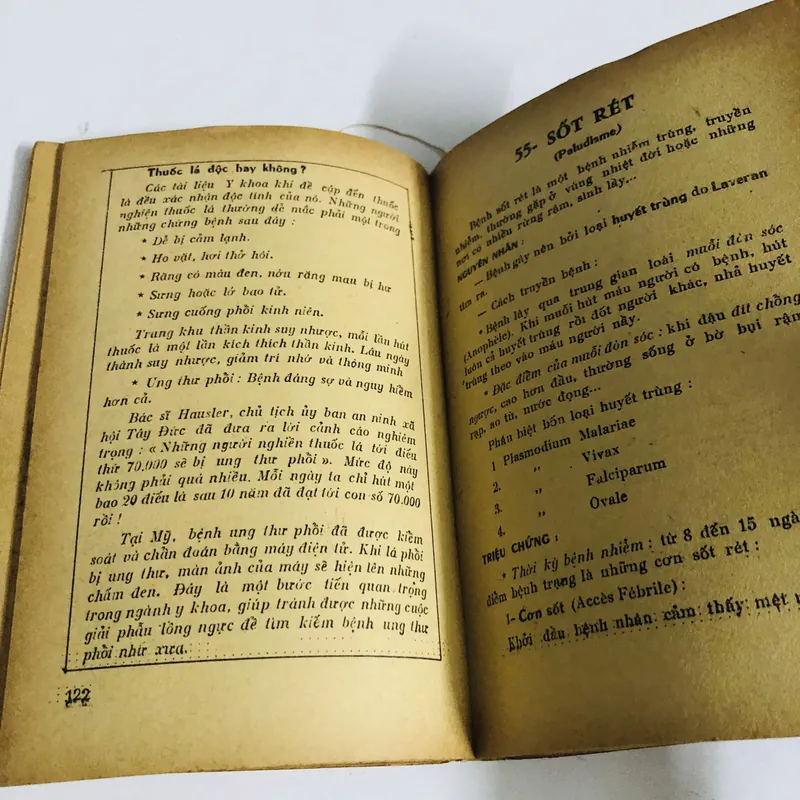 Thuốc lá độc hay không ?
Các tài liệu Y khoa khi đề cập đến thuốc
lá đều xác nhận độc tính của nó. Những người
nghiện thuốc lá thường dễ mắc phải một trong
những chứng bệnh sau đây :
* Dễ bị cảm lạnh.
* Ho vặt, hơi thở hôi.
* Răng có màu đen, nớu răng mau bị hư
* Sưng hoặc lở bao tử.
* Sưng cuống phổi kinh niên.
Trung khu thần kinh suy nhược, mỗi lần hút
thuốc là một lần kích thích thần kinh. Lâu ngày
thành suy nhược, giảm trí nhớ và thông minh
* Ung thư phổi : Bệnh đáng sợ và nguy hiểm
hơn cả.
Bác sĩ Hausler, chủ tịch ủy ban an ninh xã
hội Tây Đức đã đưa ra lời cảnh cáo nghiêm
trọng : « Những người nghiền thuốc lá tới điếu
thứ 70.000 sẽ bị ung thư phổi ». Mức độ này
không phải quá nhiều. Mỗi ngày ta chỉ hút một
bao 20 điếu là sau 10 năm đã đạt tới con số 70.000
rồi !
Tại Mỹ, bệnh ung thư phổi đã được kiểm
soát và chẩn đoán bằng máy điện tử. Khi lá phổi
bị ung thư, màn ảnh của máy sẽ hiện lên những
chấm đen. Đây là một bước tiến quan trọng
trong ngành y khoa, giúp tránh được những cuộc
giải phẫu lồng ngực để tìm kiếm bệnh ung thư
phổi như xưa.
122
55- SỐT RÉT
(Paludisme)
Bệnh sốt rét là một bệnh nhiễm trùng, truyền
nhiễm, thường gặp ở vùng nhiệt đới hoặc những
nơi có nhiều rừng rậm, sình lầy...
NGUYÊN NHÂN :
— Bệnh gây nên bởi loại huyết trùng do Laveran
tìm ra.
— Cách truyền bệnh :
* Bệnh lây qua trung gian loài muỗi đòn sóc
(Anophèle). Khi muỗi hút máu người có bệnh, hút
luôn cả huyết trùng rồi đốt người khác, nhả huyết
trùng theo vào máu người này.
* Đặc điểm của muỗi đòn sóc : khi đậu đít chổng
ngược, cao hơn đầu, thường sống ở bờ bụi rậm
rạp, ao tù, nước đọng...
Phân biệt bốn loại huyết trùng :
1 Plasmodium Malariae
2. „ Vivax
3. „ Falciparum
4. „ Ovale
TRIỆU CHỨNG :
* Thời kỳ bệnh nhiễm : từ 8 đến 15 ngà
điểm bệnh trạng là những cơn sốt rét :
1- Cơn sốt (Accès Fébrile) :
Khởi đầu bệnh nhân cảm thấy mệt